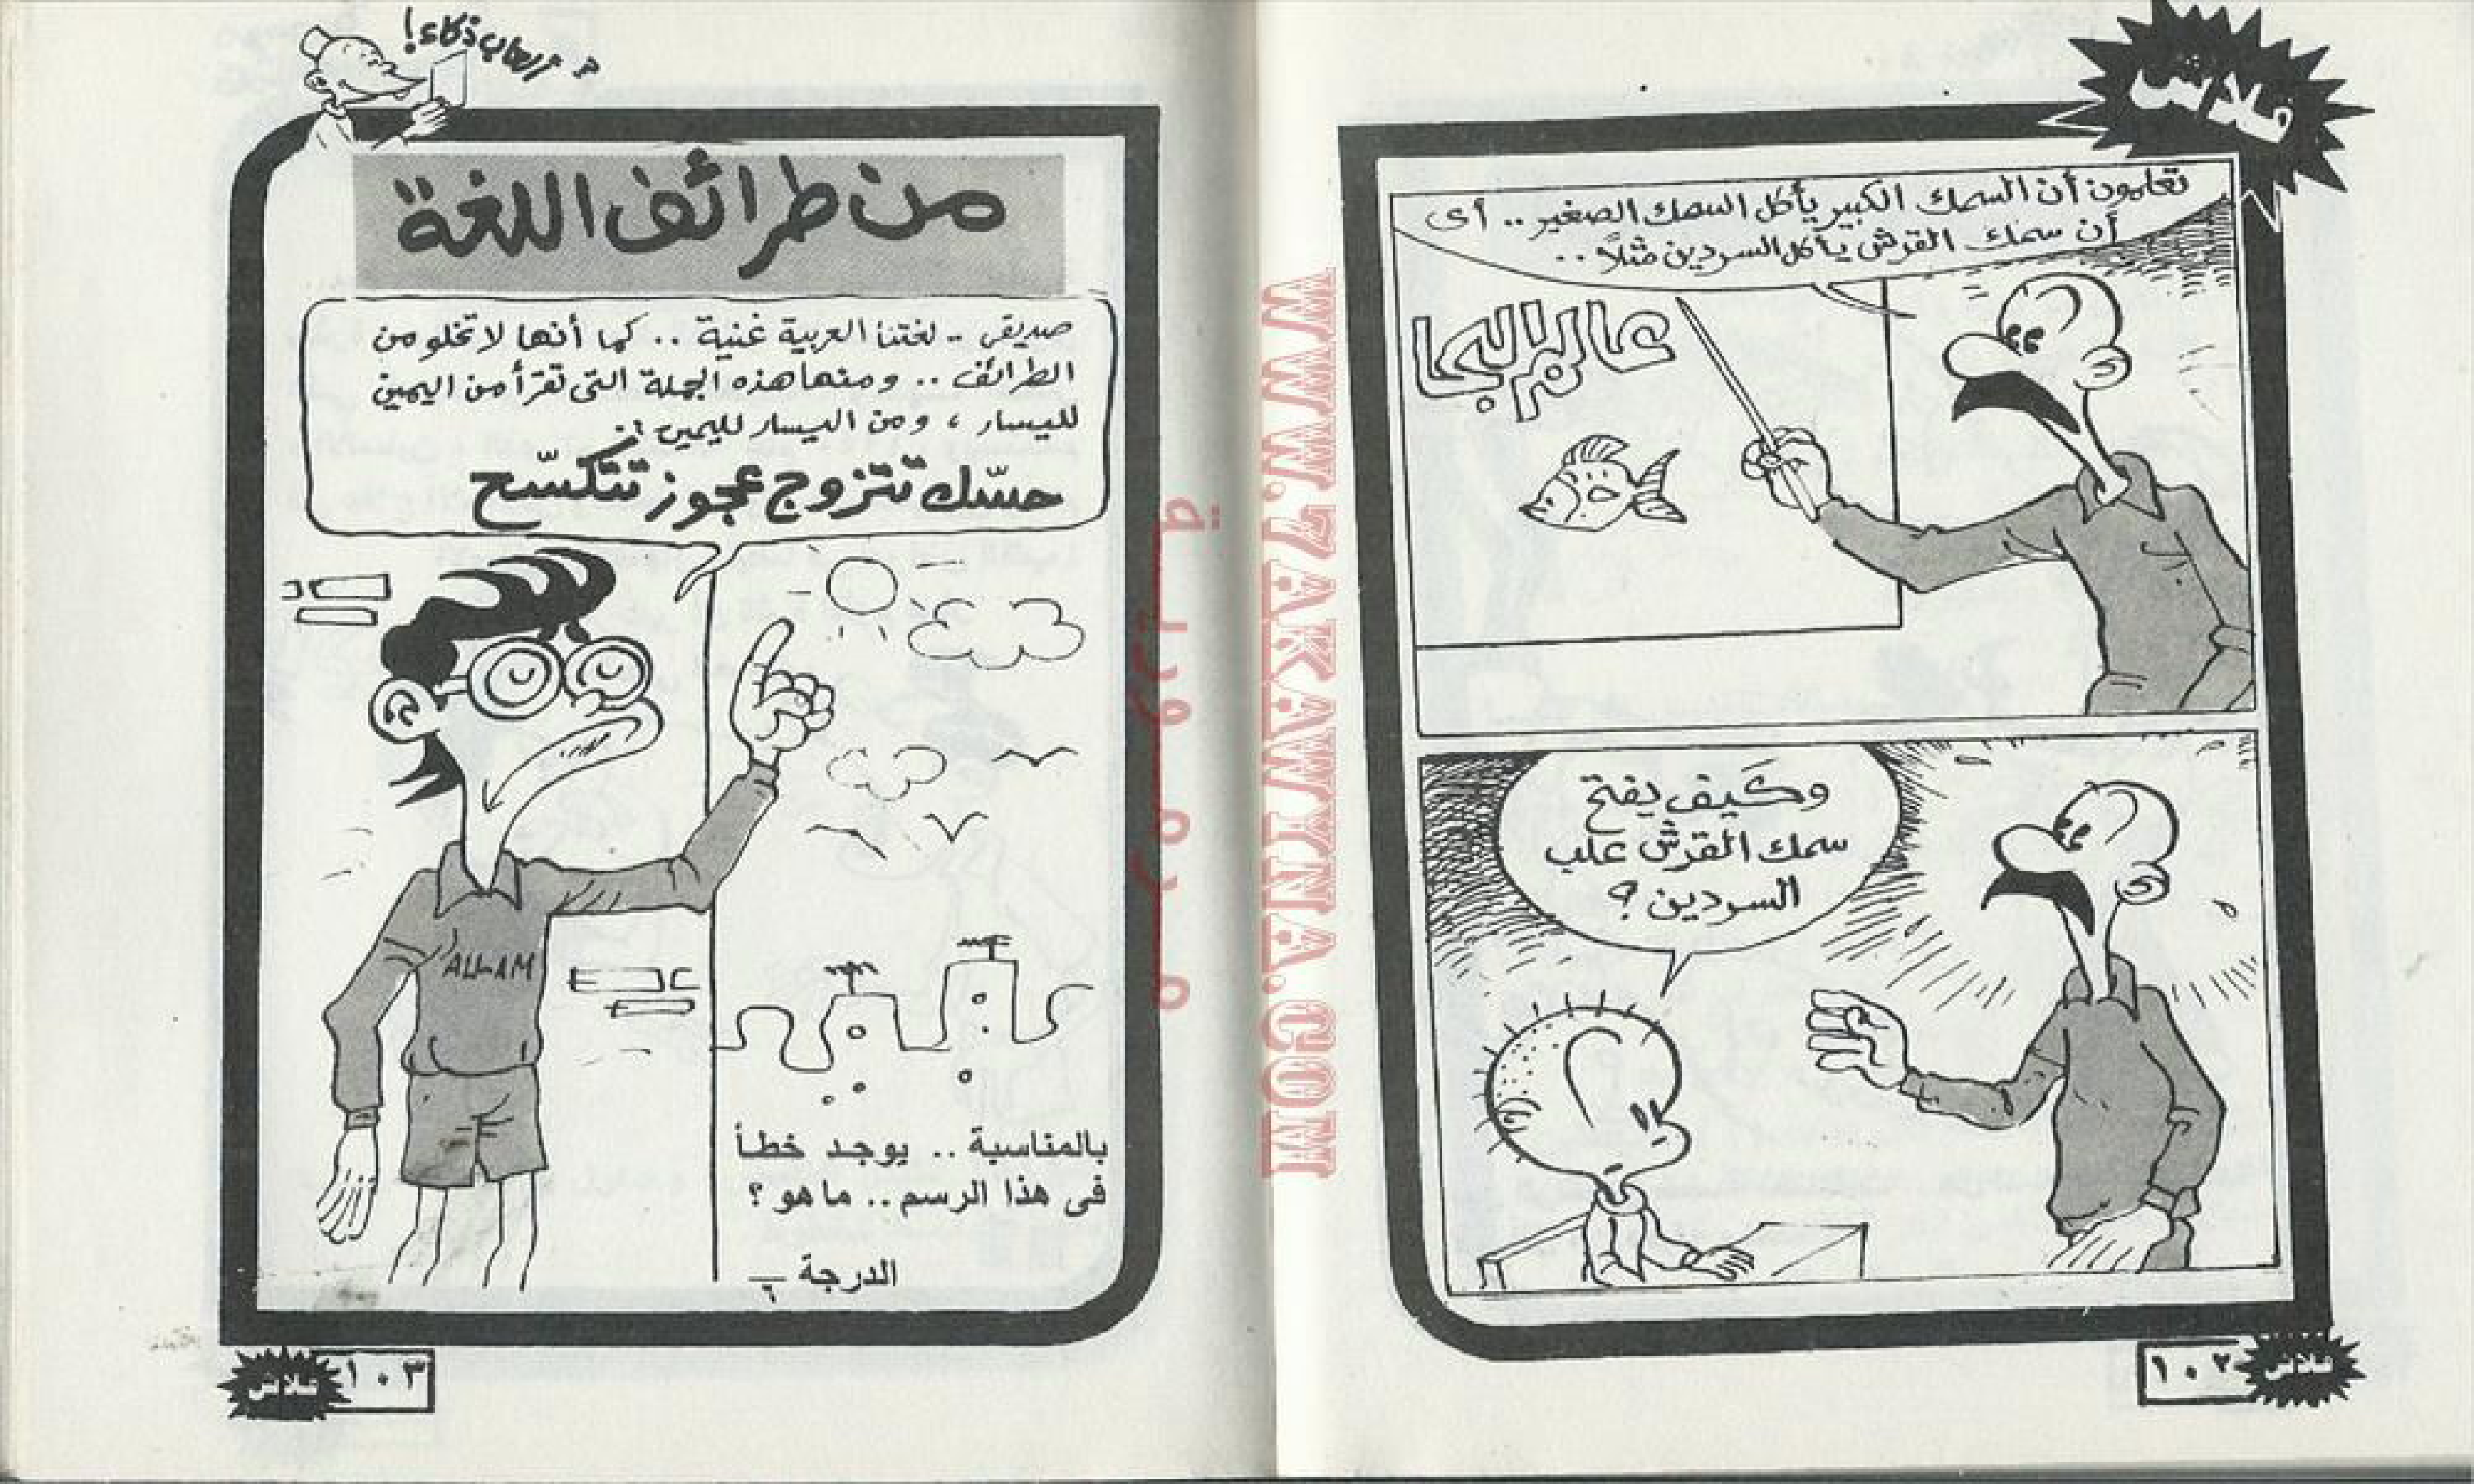 فلاش
تعلمون أن السمك الكبير يأكل السمك الصغير .. أى
أن سمك القرش يأكل السردين مثلاً ..
عالم البحا
وكيف يفتح
سمك القرش علب
السردين ؟
١٠٢
فلاش
WWW.ZAKAWTNA.COM
ألعاب ذكاء !
من طرائف اللغة
صديقى .. لغتنا العربية غنية .. كما أنها لا تخلو من
الطرائف .. ومنها هذه الجملة التى تقرأ من اليمين
لليسار ، ومن اليسار لليمين :
حسّك تتزوج عجوز تتكسّح
ALLAM
بالمناسبة .. يوجد خطأ
فى هذا الرسم .. ما هو ؟
الدرجة ـــ
٦
١٠٣
فلاش